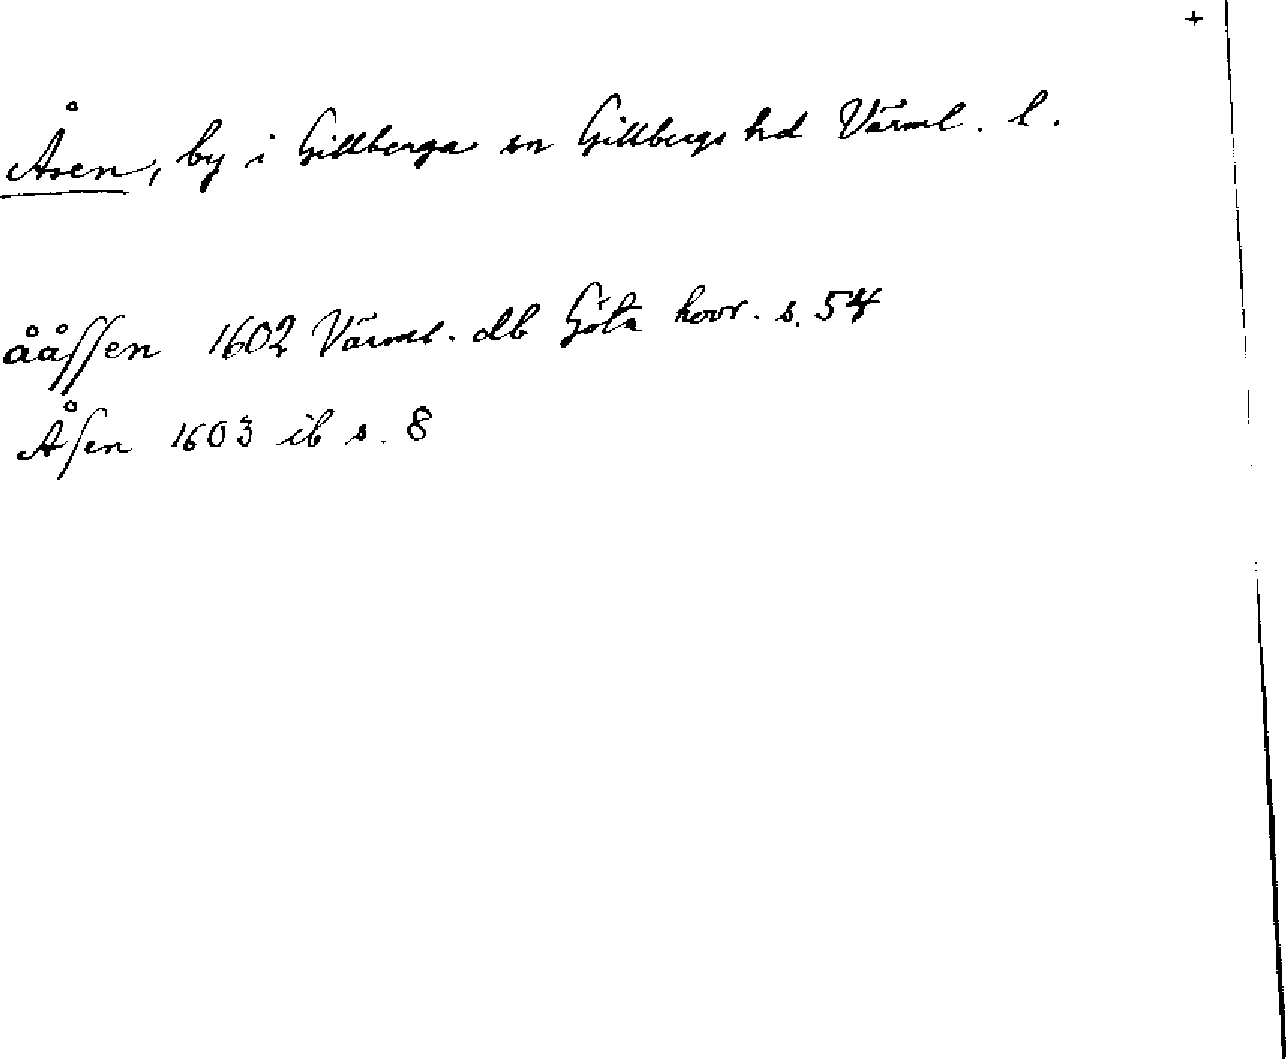 +
Åsen, by i Gillberga sn Gillbergs hd Värml. l.
ååſſen 1602 Värml. db Göta hovr. s. 54
Åſen 1603 ib s. 8